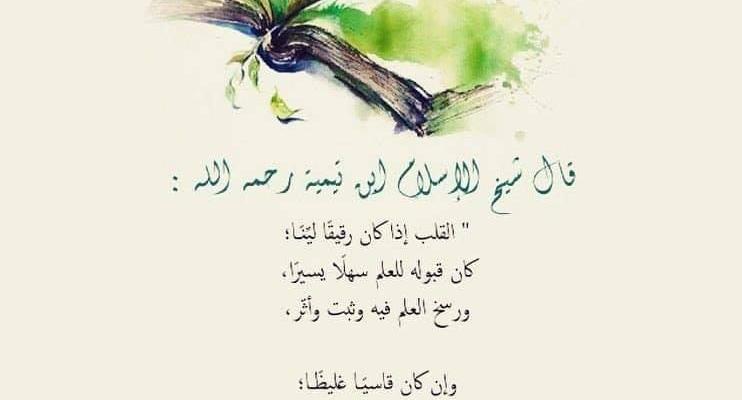 قال شيخ الإسلام ابن تيمية رحمه الله :
" القلب إذا كان رقيقًا ليّنَا؛
كان قبوله للعلم سهلَا يسيرَا،
ورسخ العلم فيه وثبت وأثّر،
وإن كان قاسيَا غليظَا؛